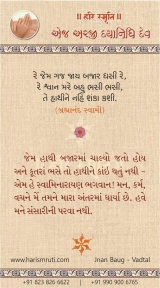 ॥ હરિ સ્મૃતિ ॥
એજ અરજી દયાનિધિ દેવ
રે જેમ ગજ જાય બજાર ધસી રે,
રે શ્વાન મરે બહુ ભસી ભસી,
તે હાથીને નહિ શંકા કશી.
(બ્રહ્માનંદ સ્વામી)
જેમ હાથી બજારમાં ચાલ્યો જતો હોય
અને કુતરાં ભસે તો હાથીને કાંઇ થતું નથી –
એમ હે સ્વામિનારાયણ ભગવાન! મન, કર્મ,
વચને મેં તમને મારા અંતરમાં ધાર્યા છે. હવે
મને સંસારીની પરવા નથી.
www.harismruti.com
Jnan Baug - Vadtal
+91 823 826 6622 | +91 990 900 6765